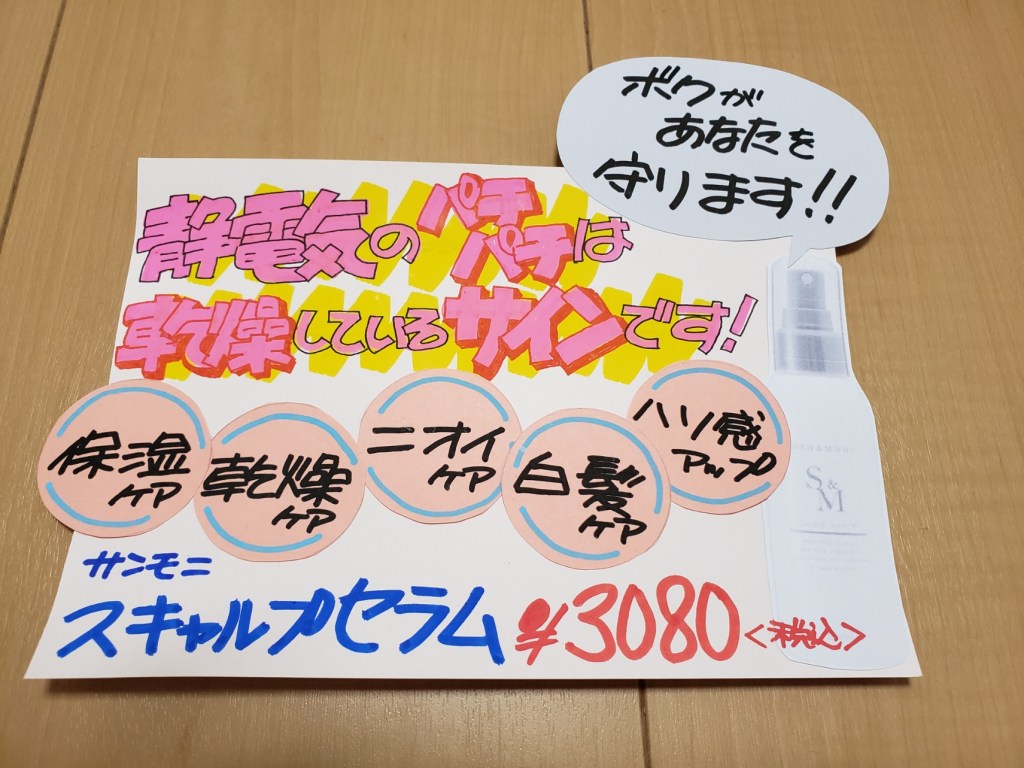 ボクが
あなたを
守ります!!
静電気のパチパチは
乾燥しているサインです!
保湿
ケア
乾燥
ケア
ニオイ
ケア
白髪
ケア
ハリ感
アップ
S&M
サンモニ
スキャルプセラム ¥3080<税込>